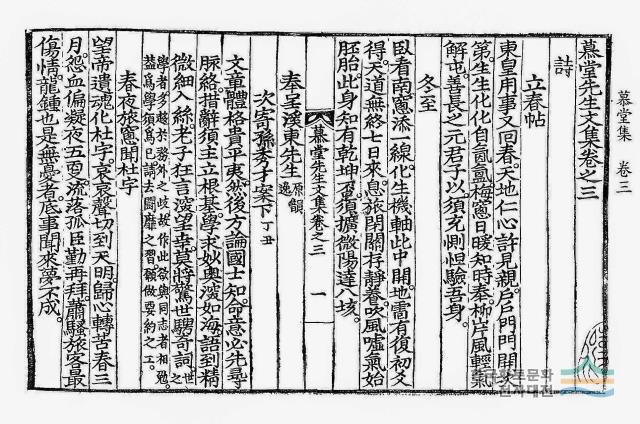 慕堂先生文集卷之三
詩
立春帖
東皇用事又回春天地仁心許見親戶戶門門開泰
第生生化化自氤氳梅窓日暖知時奉柳岸風輕氣
解屯善長之元君子以須充惻怛驗吾身
冬至
臥看南窓添一線化生機軸此中開地雷有復初爻
得天道無終七日來息旅閉關存靜養吹風噓氣始
胚胎此身知有乾坤否須擴微陽達八垓
奉呈漢東先生 原韻逸
慕堂先生文集卷之三 一
次寄孫秀才案下 丁丑
文章體格貴平夷然後方論國士知命意必先尋
脈絡措辭須主立根基學求妙奧深如海語到精
微細入絲老子狂言深望垂莫將驚世騁奇詞 世之
學者多趨於務外之歧故作此欲與同志者相勉
益爲學須爲己請去鬪靡之習願做要約之工
春夜旅窓聞杜宇
望帝遺魂化杜宇哀哀聲切到天明歸心轉苦春三
月怨血偏凝夜五更流落孤臣勤再拜蕭騷旅客最
傷情龍鍾也是無憀者底事聞來夢不成
慕堂集 卷三
한국향토문화
전자대전